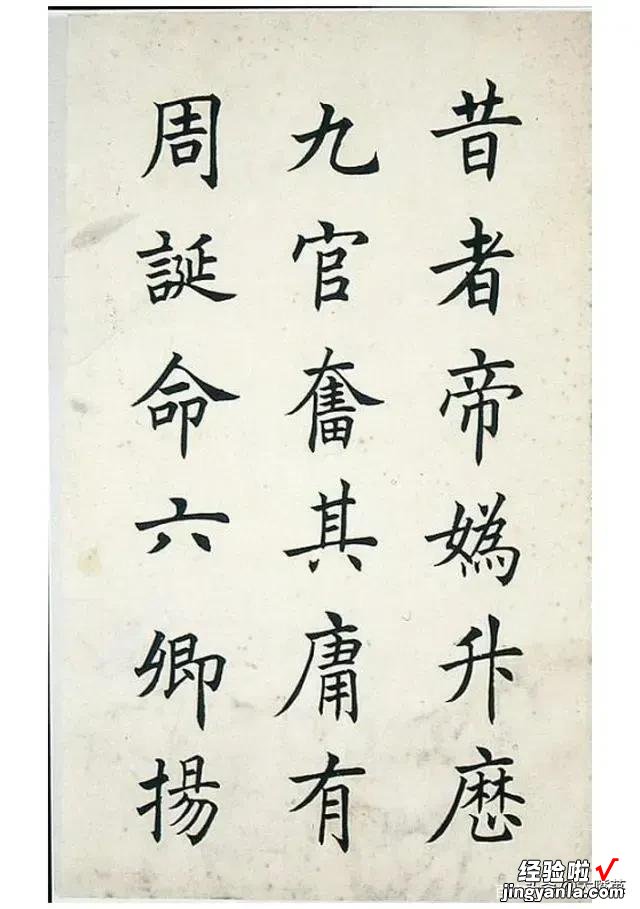 昔者帝媯升歴
九官奮其庸有
周誕命六卿揚
经验啦
jingyanla.com